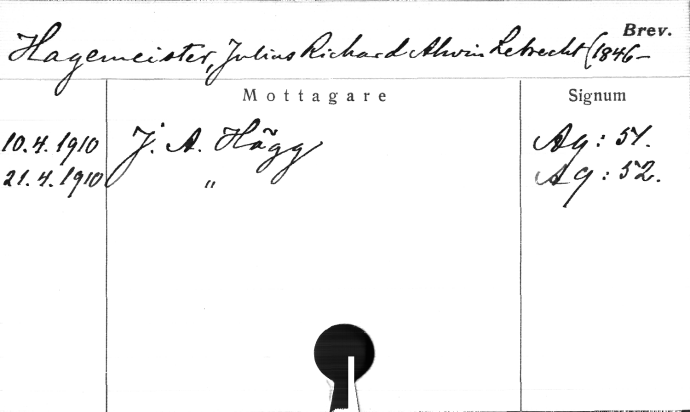 Brev.
Hagemeister, Julius Richard Alwin Lebrecht (1846-
Mottagare Signum
10.4.1910 J. A. Hägg Ag: 51.
21.4.1910 " Ag: 52.